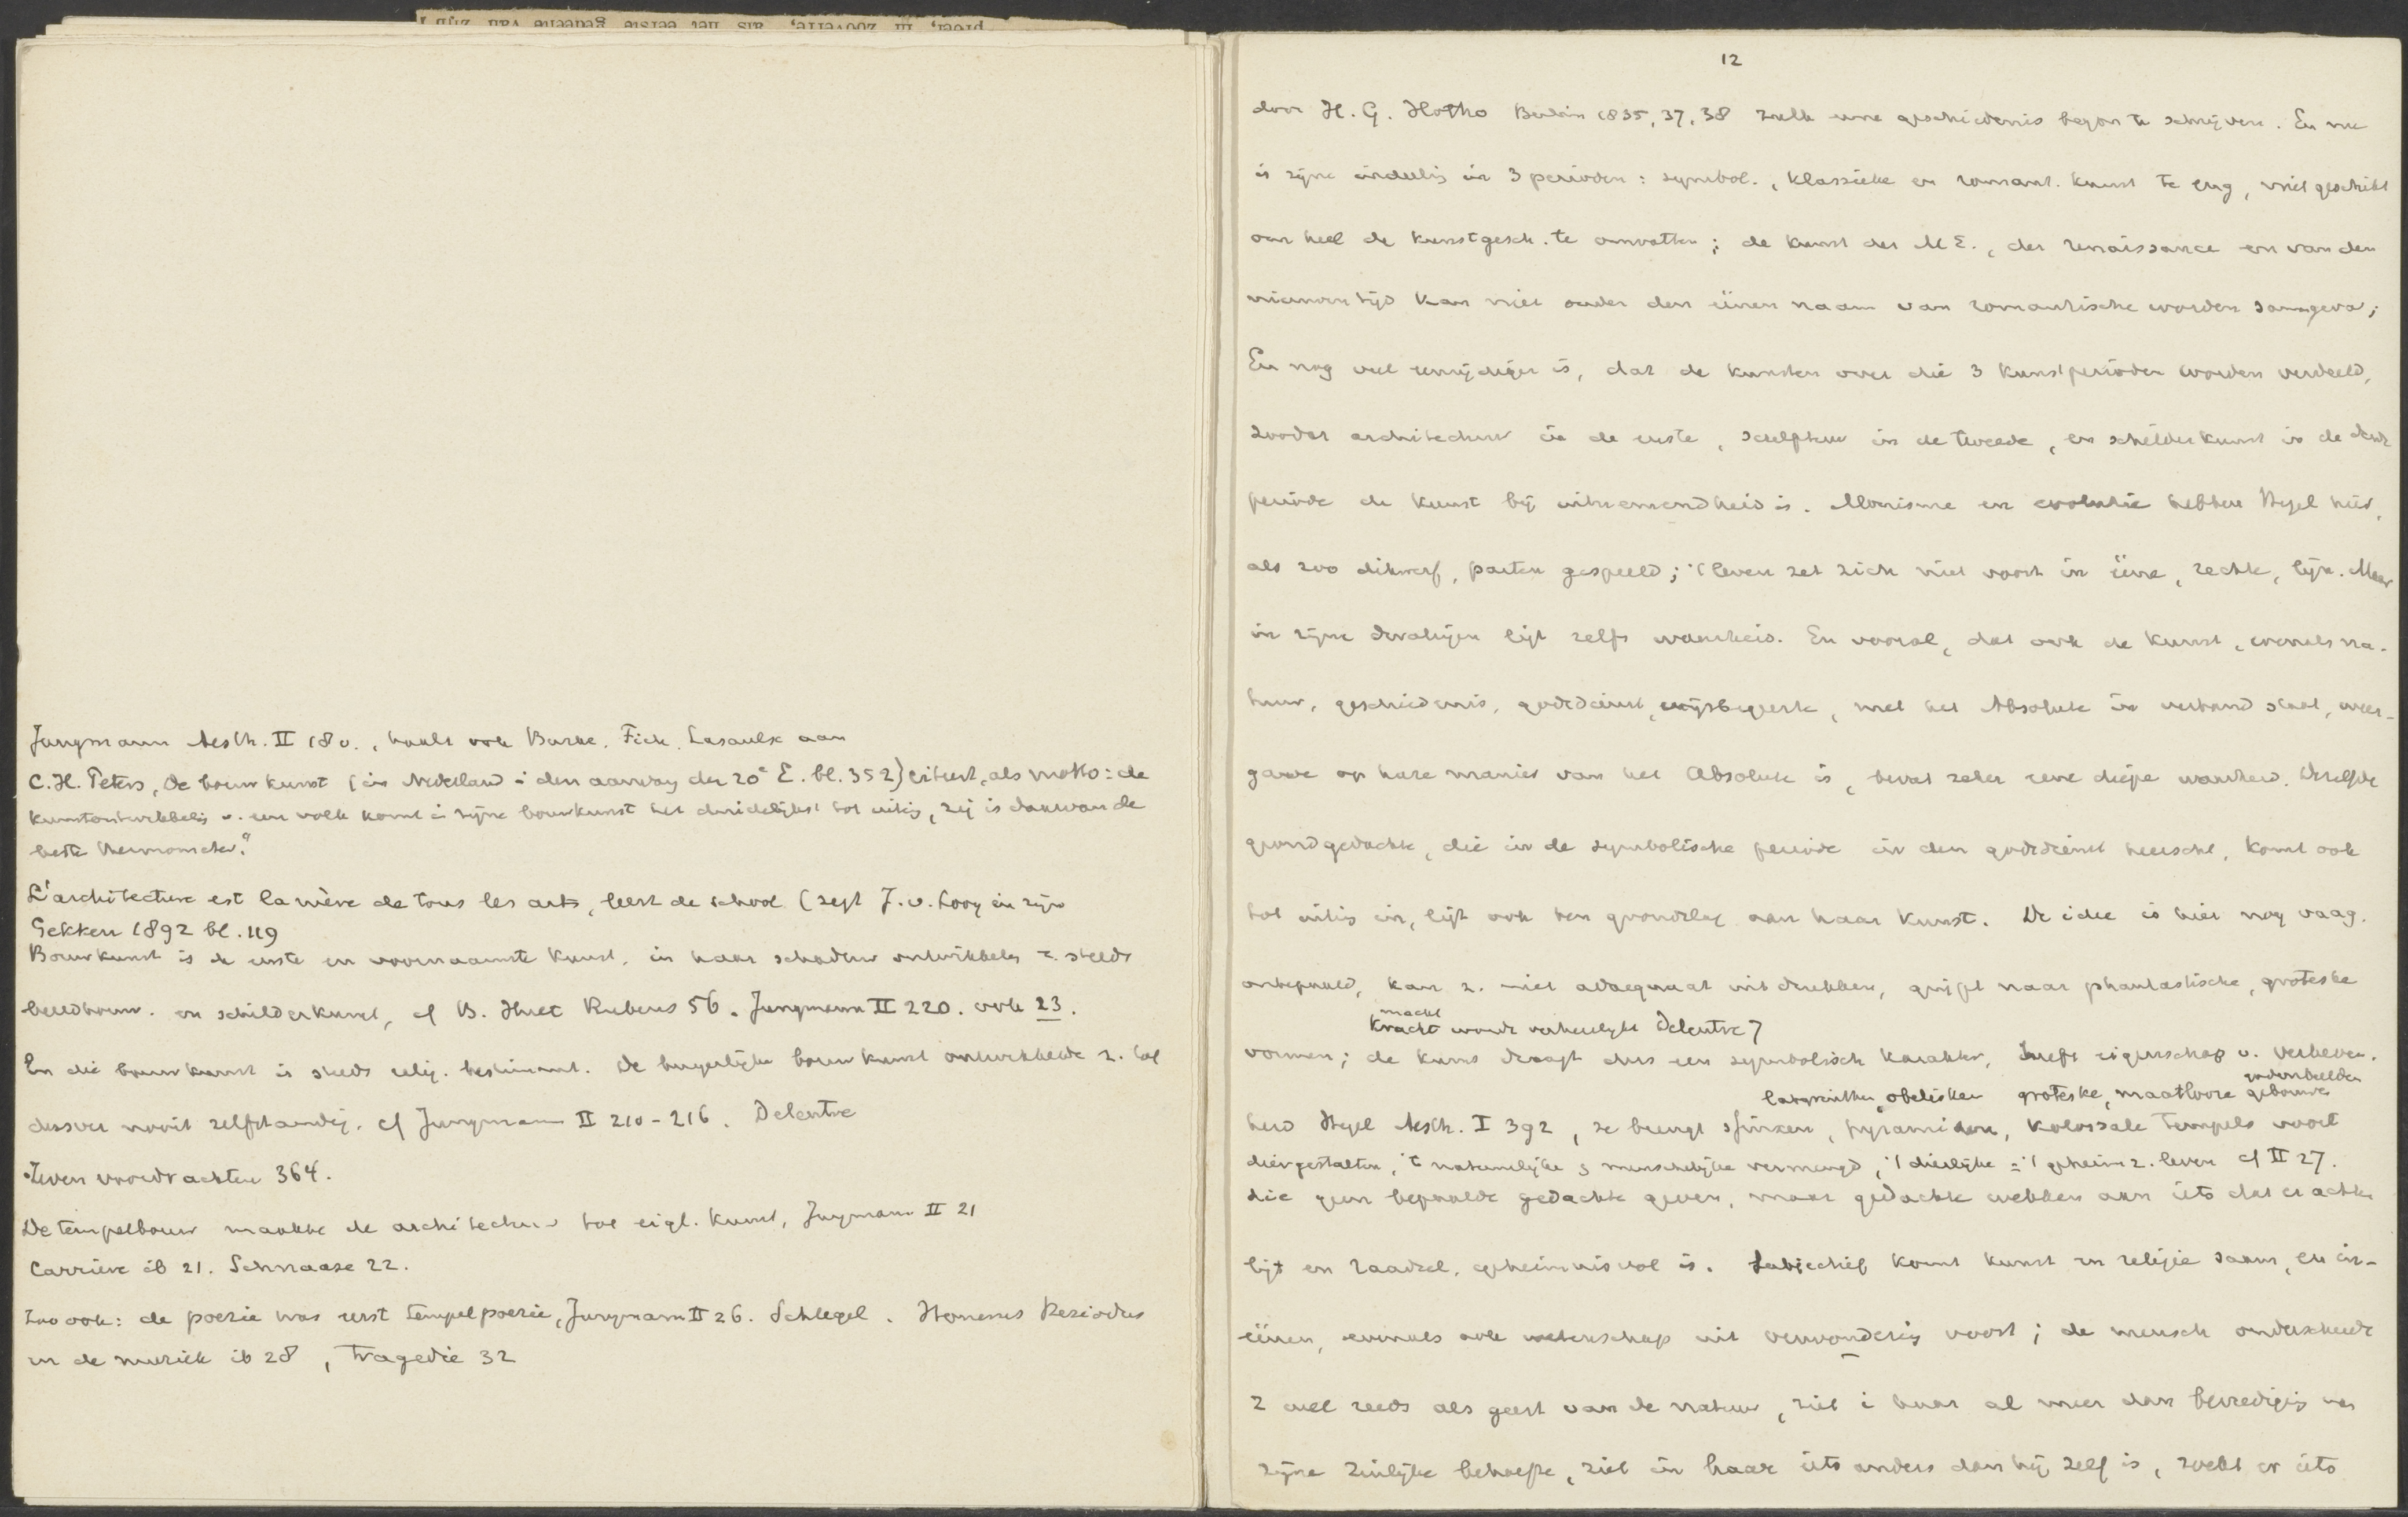 Jungmann Aesth. II 180., haalt ook Burke. Fick. Lasaulx aan
C.H. Peters, De bouwkunst (in Nederland i den aanvang der 20e E. bl. 352) citeert, als motto: de
kunstontwikkeling v. een volk komt i zijne bouwkunst het duidelijkst tot uiting, zij is daarvan de
beste thermometer."
L'architecture est la mère de tous les arts, leert de school (zegt J. v. Looy in zijn
Gekken 1892 bl. 119
Bouwkunst is de eerste en voornaamste kunst, in haar schaduw ontwikkelen z. steeds
beeldhouw. en schilderkunst, cf B. Huet Rubens 56. Jungmann II 220. ook 23.
En die bouwkunst is steeds relig. bestemd. De burgerlijke bouwkunst ontwikkelde z. tot
dusver nooit zelfstandig, cf Jungmann II 210-216. Delentre
Zeven voordrachten 364.
De tempelbouw maakte de architectuur tot eigl. kunst, Jungmann II 21
Carriere ib 21. Schnaase 22.
Zoo ook: de poezie was eerst tempelpoezie, Jungmann II 26. Schlegel. Homerus Hesiodus
en de muziek ib 28, tragedie 32
12
door H. G. Hotho Berlin 1835, 37, 38 zulk eene geschiedenis begon te schrijven. En nu
is zijne indeeling in 3 perioden: symbol., klassieke en romant. kunst te eng, niet geschikt
om heel de kunstgesch. te omvatten; de kunst der M E., der renaissance en van den
nieuwen tijd kan niet onder den éénen naam van romantische worden saamgevat;
En nog veel eenzijdiger is, dat de kunsten over die 3 kunstperioden worden verdeeld,
zoodat architectuur in de eerste, sculptuur in de tweede, en schilderkunst in de derde
periode de kunst bij uitnemendheid is. Monisme en evolutie hebben Hegel hier,
als zoo dikwerf, parten gespeeld; 't leven zet zich niet voort in ééne, rechte, lijn. Maar
in zijne dwalingen ligt zelfs waarheid. En vooral, dat ook de kunst, evenals na-
tuur, geschiedenis, godsdienst, wijsbegeerte, met het Absolute in verband staat, weer-
gave op hare manier van het Absolute is, bevat zeker eene diepe waarheid. Dezelfde
grondgedachte, die in de symbolische periode in den godsdienst heerscht, komt ook
tot uiting in, ligt ook ten grondslag aan haar kunst. De idee is hier nog vaag,
onbepaald, kan z. niet adaequaat uitdrukken, grijpt naar phantastische, groteske
macht
kracht wordt verheerlijkt Delentre 7
vormen; de kunst draagt dus een symbolisch karakter, heeft eigenschap v. verheven-
godenbeelden
labyrinthen, obelisken groteske, maatlooze gebouwen
heid Hegel Aesth. I 392, ze brengt sfinxen, pyramiden, kolossale tempels voort
diergestalten, 't natuurlijke & menschelijke vermengd, 't dierlijke = 't geheimz. leven cf II 27.
die geen bepaalde gedachte geven, maar gedachte wekken aan iets dat er achter
ligt en raadsel, geheimnisvol is. Subjectief komt kunst en religie saam, en in-
éénen, evenals ook wetenschap uit verwondering voort; de mensch onderscheidt
z wel reeds als geest van de natuur, ziet i haar al meer dan bevrediging van
zijne zinlijke behoefte, ziet in haar iets anders dan hij zelf is, zoekt er iets